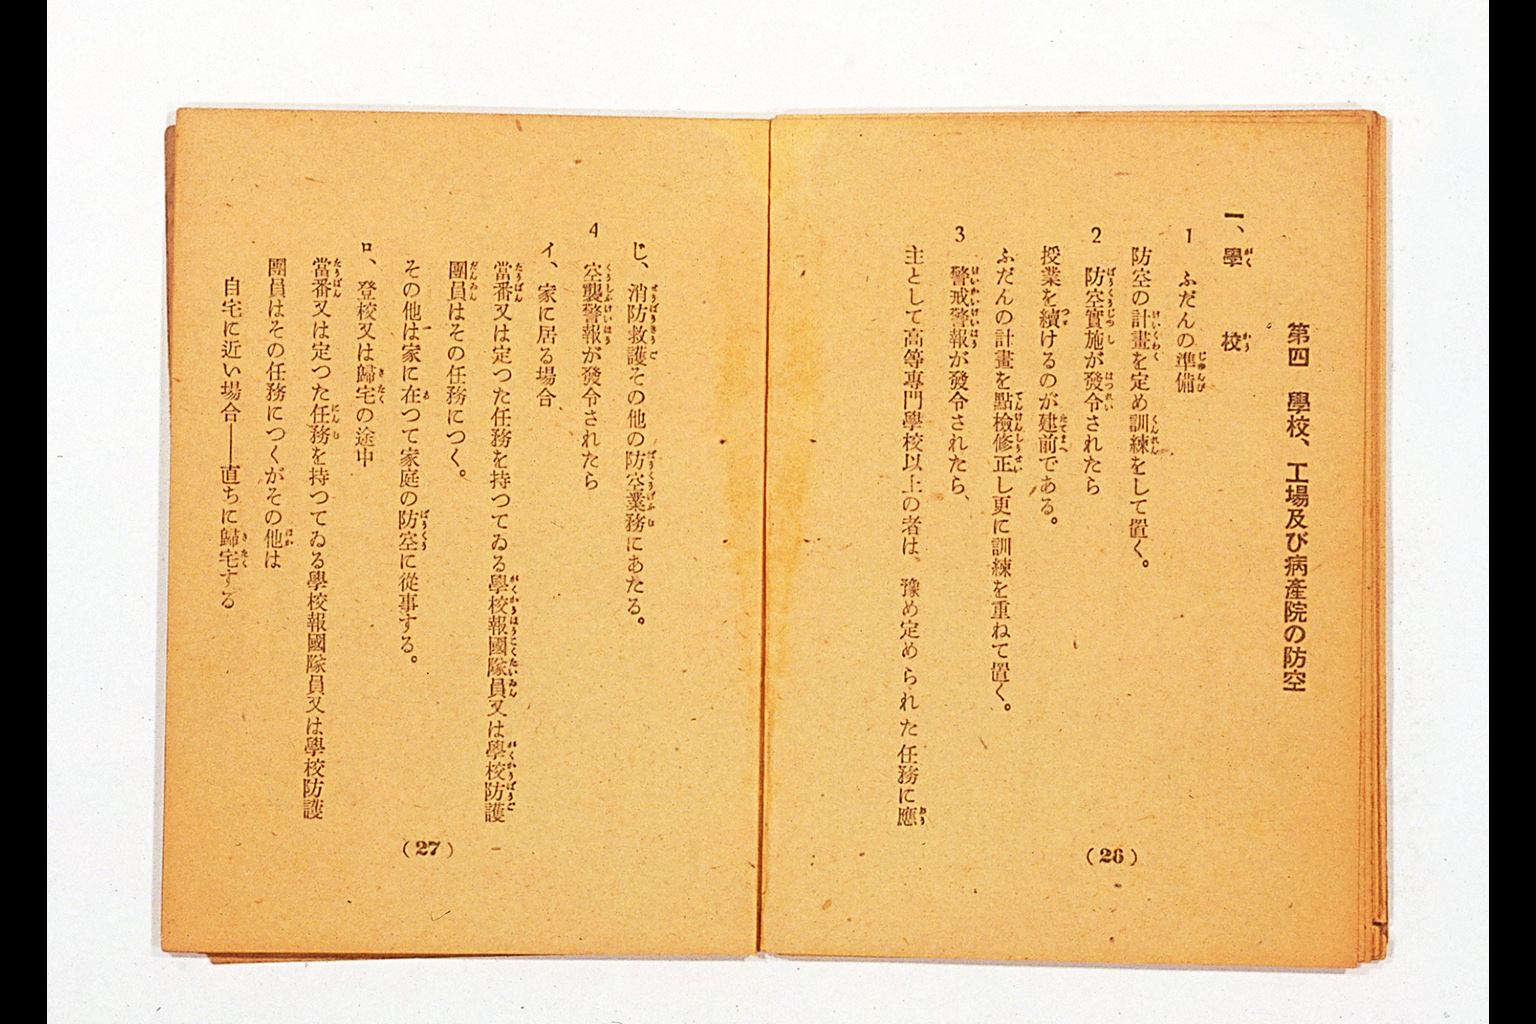 第四　學校、工場及び病產院の防空
一、學校
1　ふだんの準備
防空の計畫を定め訓練をして置く。
2　防空實施が發令されたら
授業を續けるのが建前である。
ふだんの計畫を點檢修正し更に訓練を重ねて置く。
3　警戒警報が發令されたら、
主として高等專門學校以上の者は、豫め定められた任務に應
(26)
じ、消防救護その他の防空業務にあたる。
4　空襲警報が發令されたら
イ、家に居る場合
當番又は定つた任務を持つてゐる學校報國隊員又は學校防護
團員はその任務につく。
その他は家に在つて家庭の防空に從事する。
ロ、登校又は歸宅の途中
當番又は定つた任務を持つてゐる學校報國隊員又は學校防護
團員はその任務につくがその他は
自宅に近い場合――直ちに歸宅する
(27)